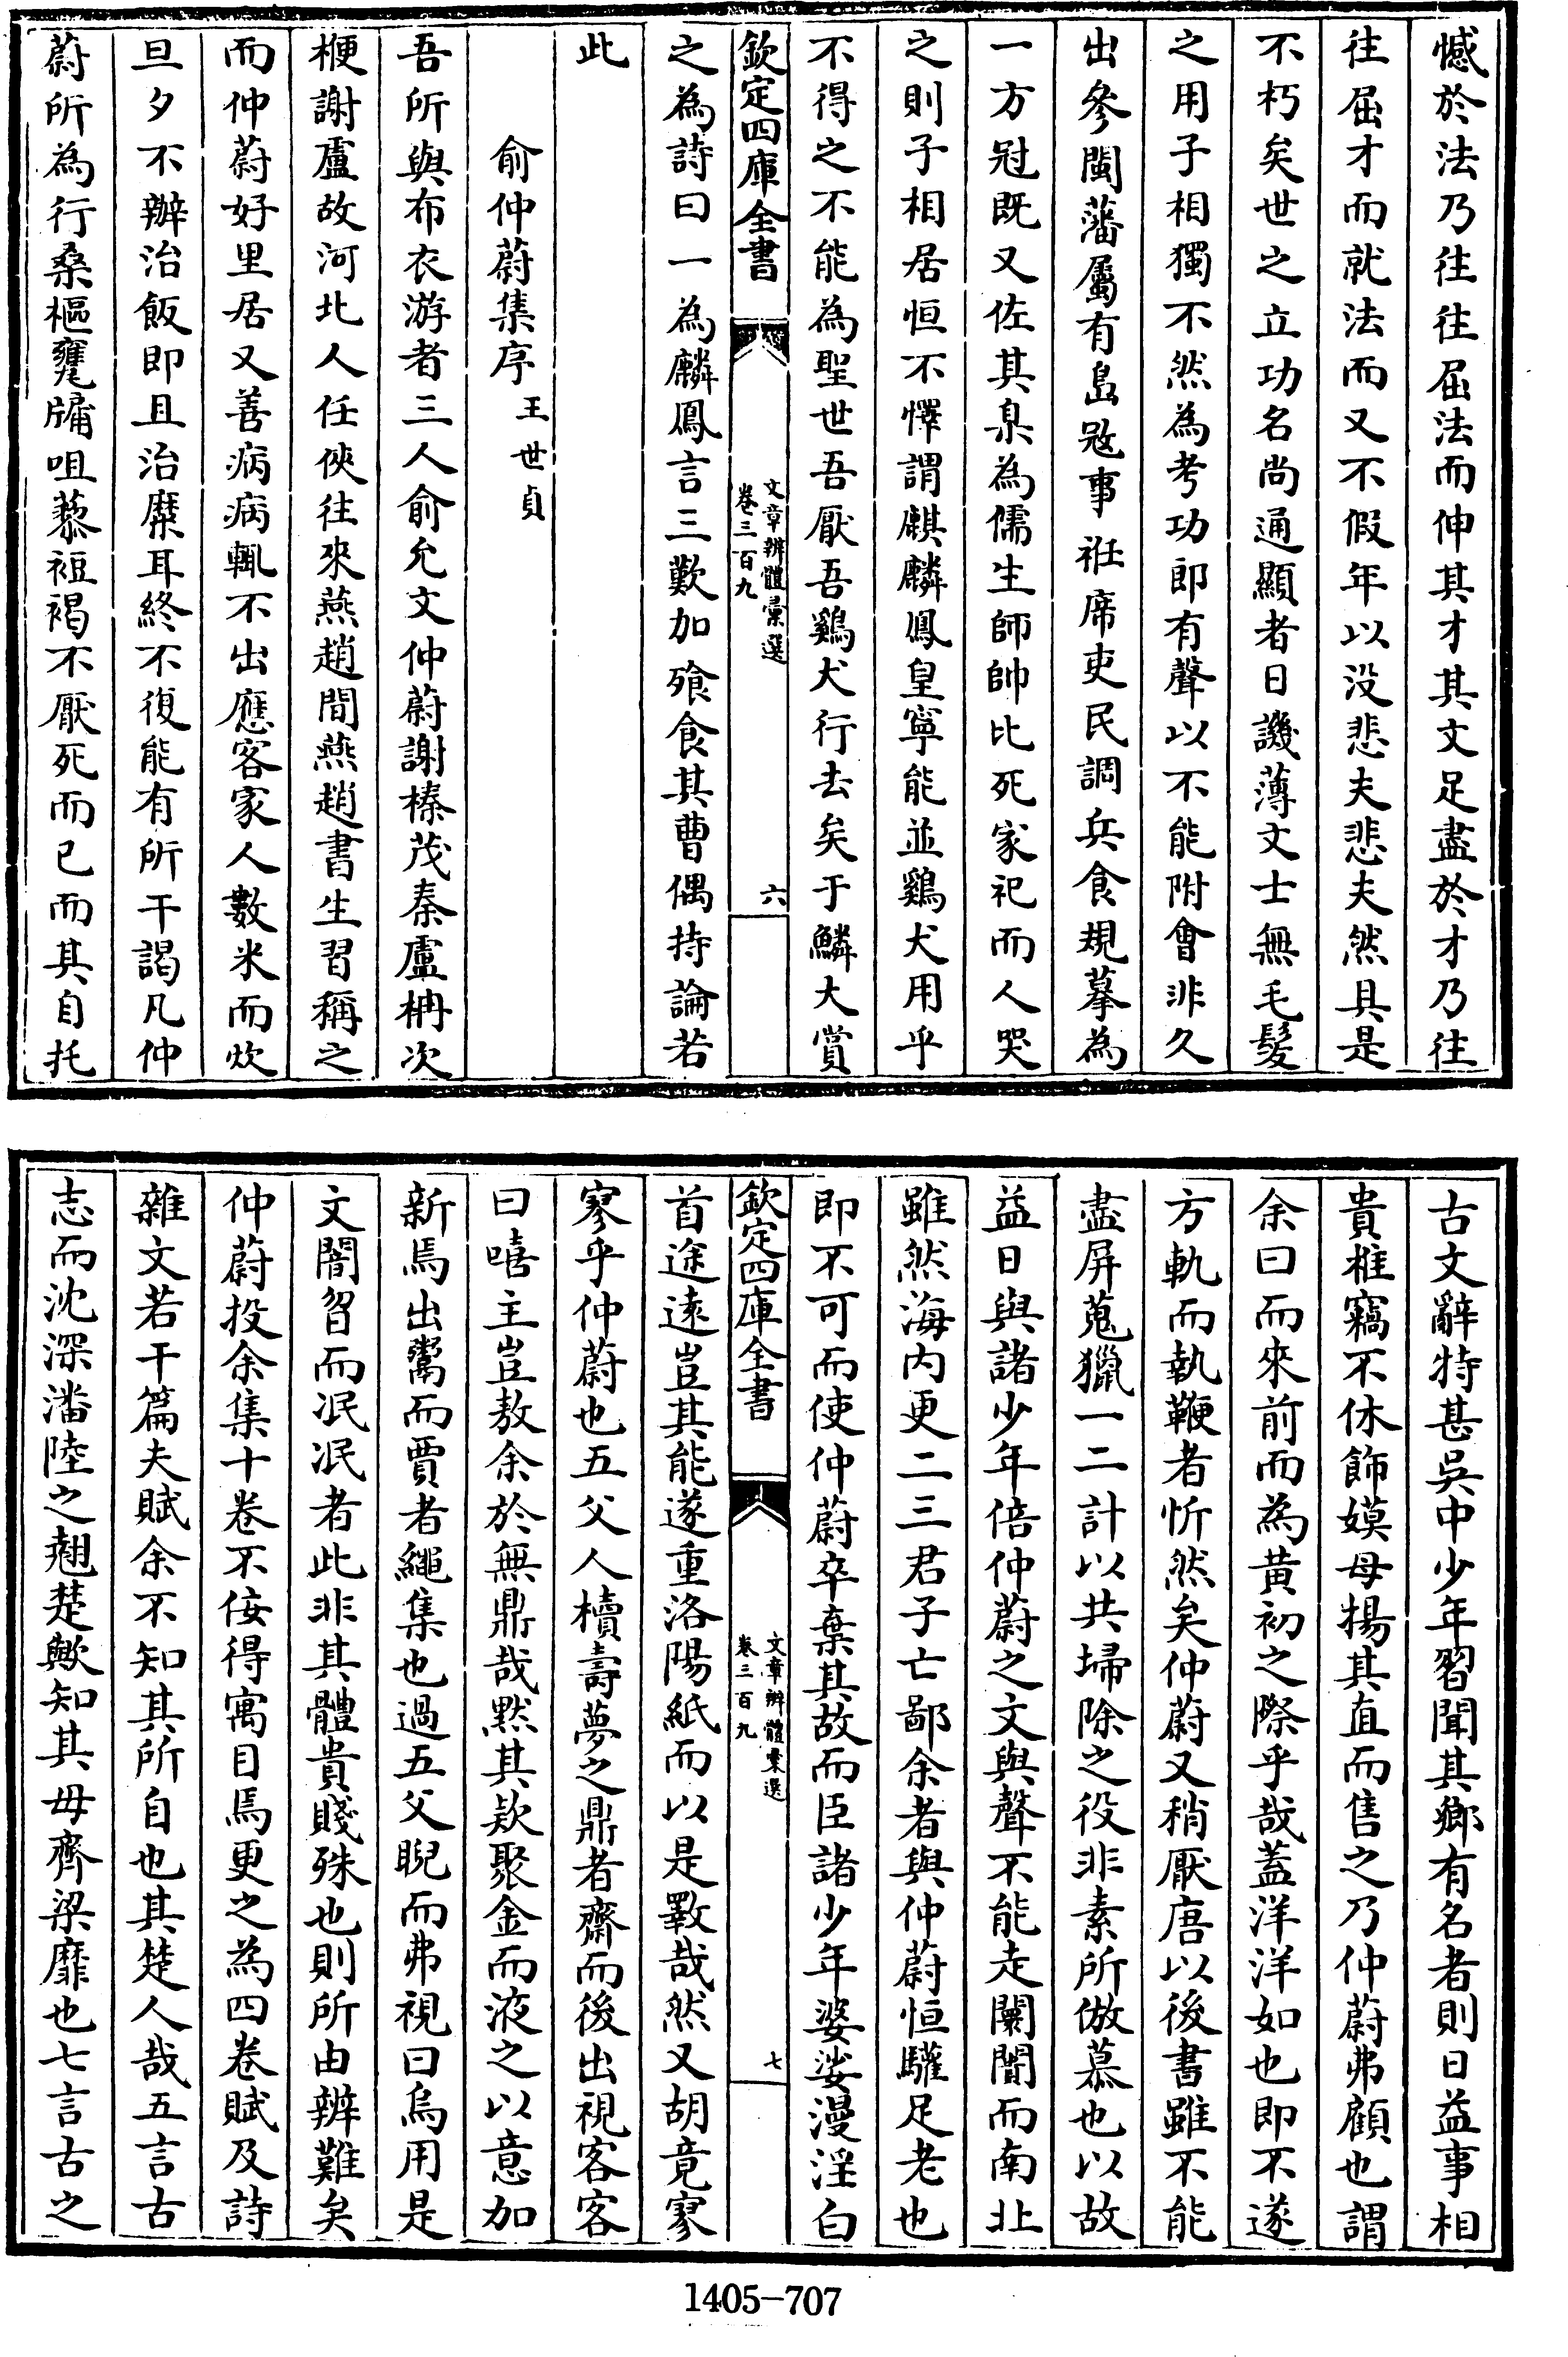 憾於法乃往往屈法而伸其才其文足盡於才乃往
往屈才而就法而又不假年以没悲夫悲夫然具是
不朽矣世之立功名尚通顯者日譏薄文士無毛髮
之用子相獨不然為考功郎有聲以不能附會非久
出參閩藩屬有島寇事袵席吏民調兵食規摹為
一方冠既又佐其臬為儒生師帥比死家祀而人哭
之則子相居恒不懌謂麒麟鳳皇寧能並鷄犬用乎
不得之不能為聖世吾厭吾鷄犬行去矣于鱗大賞
欽定四庫全書
文章辨體彚選
卷三百九
六
之為詩曰一為麟鳳言三歎加飱食其曹偶持論若
此
俞仲蔚集序 王世貞
吾所與布衣游者三人俞允文仲蔚謝榛茂秦盧柟次
楩謝盧故河北人任俠往來燕趙間燕趙書生習稱之
而仲蔚好里居又善病病輒不出應客家人數米而炊
旦夕不辦治飯即且治糜耳終不復能有所干謁凡仲
蔚所為行桑樞甕牖咀藜袒褐不厭死而已而其自托
古文辭特甚吳中少年習聞其鄉有名者則日益事相
貴椎竊不休飾嫫母揚其直而售之乃仲蔚弗顧也謂
余曰而來前而為黄初之際乎哉蓋洋洋如也即不遂
方軌而執鞭者忻然矣仲蔚又稍厭唐以後書雖不能
盡屏蒐獵一二計以共埽除之役非素所倣慕也以故
益日與諸少年倍仲蔚之文與聲不能走闤闠而南北
雖然海内更二三君子亡鄙余者與仲蔚恒驩足老也
即不可而使仲蔚卒棄其故而臣諸少年婆娑漫淫白
欽定四庫全書
文章辨體彚選
卷三百九
七
首途遠豈其能遂重洛陽紙而以是斁哉然又胡竟寥
寥乎仲蔚也五父人櫝壽夢之鼎者齋而後出視客客
曰嘻主豈敖余於無鼎哉黙其欵聚金而液之以意加
新焉出鬻而賈者繩集也過五父睨而弗視曰烏用是
文闇智而泯泯者此非其體貴賤殊也則所由辨難矣
仲蔚投余集十卷不佞得寓目焉更之為四卷賦及詩
雜文若干篇夫賦余不知其所自也其楚人哉五言古
志而沈深潘陸之翹楚歟知其毋齊梁靡也七言古之
1405-707